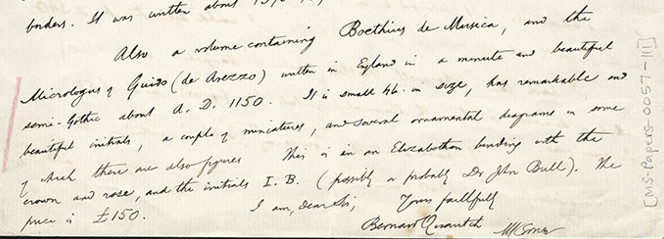 borders. It was written about
Also a volume containing Boethius de Musica, and the
Micrologus of Guido (de Arezzo) written in England in a minute and beautiful
semi-Gothic about A.D. 1150. It is small 4to. in size, has remarkable and
beautiful initials, a couple of miniatures, and several ornamental diagrams in some
of which there are also figures This is in an Elizabethan binding with the
crown and rose, and the initials I.B. (possibly or probably Dr John Bull). The
price is £150.
I am, Dear Sir, Yours faithfully
Bernard Quaritch
[MS-Papers-0057-111]